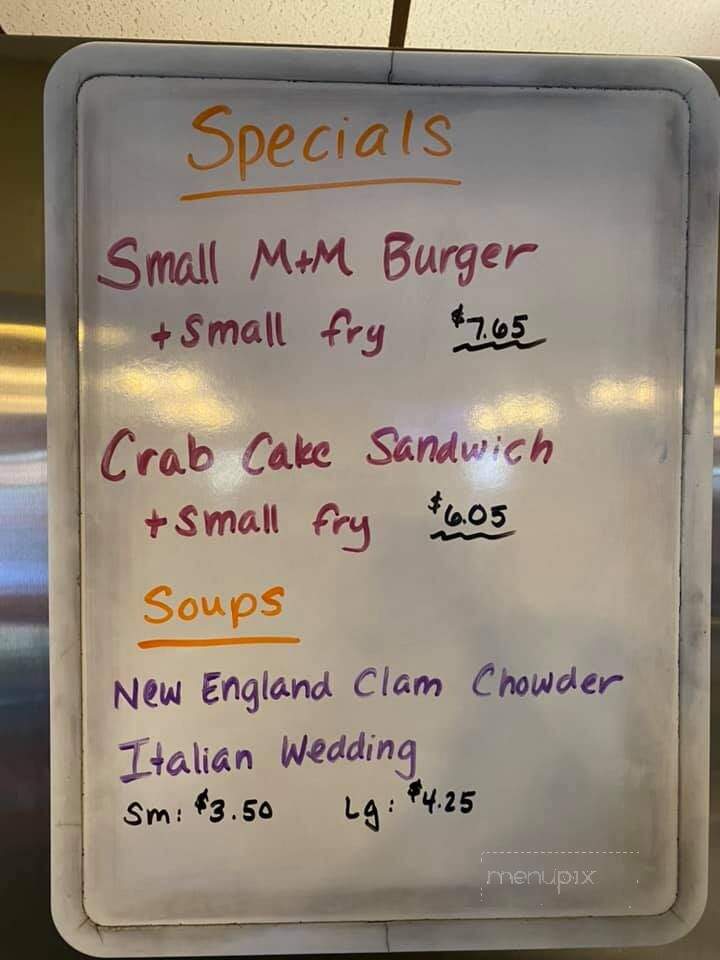 Specials
Small M+M Burger
+ Small fry $7.65
Crab Cake Sandwich
+ Small fry $6.05
Soups
New England Clam Chowder
Italian Wedding
Sm: $3.50 Lg: $4.25
menupix